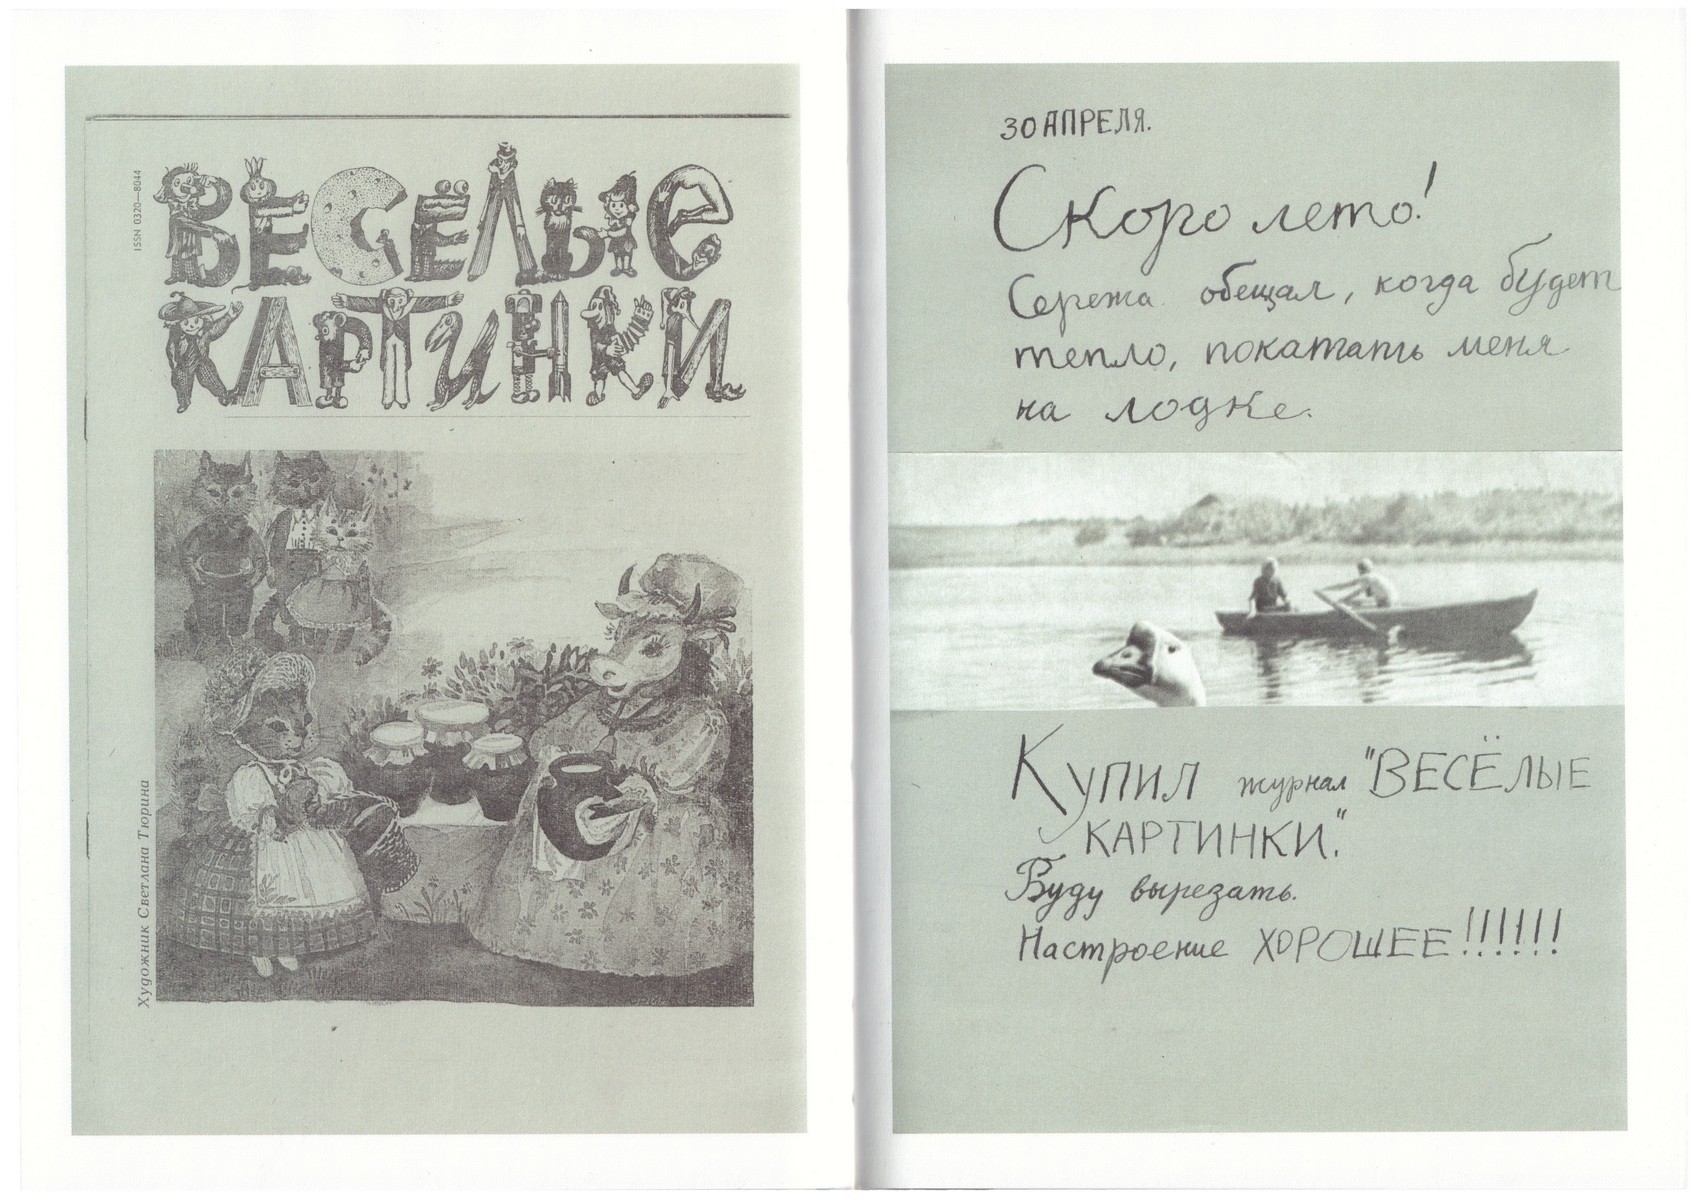 ISSN 0320—8044
ВЕСЁЛЫЕ
КАРТИНКИ
Художник Светлана Тюрина
30 АПРЕЛЯ.
Скоро лето!
Сережа обещал, когда будет
тепло, покатать меня
на лодке.
Купил журнал "ВЕСЁЛЫЕ
КАРТИНКИ".
Буду вырезать.
Настроение ХОРОШЕЕ!!!!!!